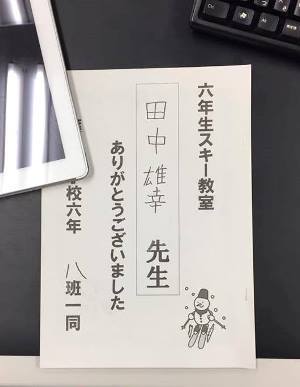 六年生スキー教室
田中雄幸 先生
ありがとうございました
校六年 八班一同